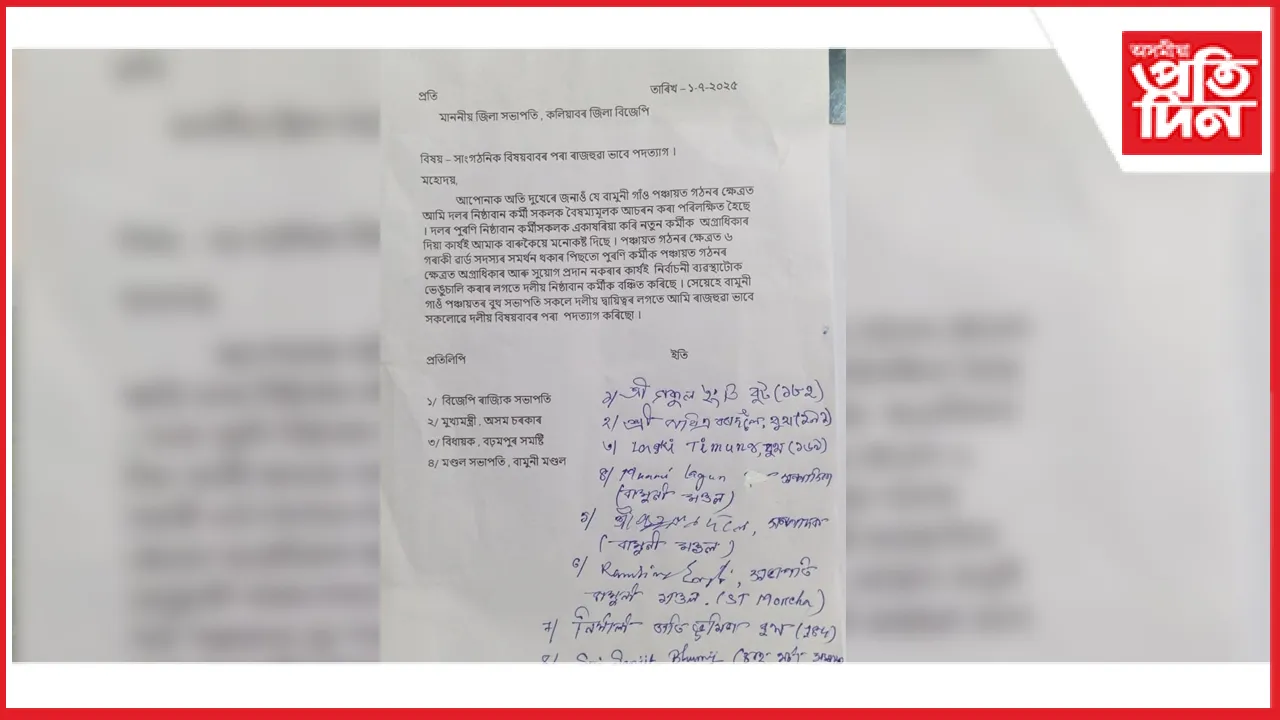 অসমীয়া
প্ৰতি
দিন
তাৰিখ – ১-৭-২০২৫
প্ৰতি
মাননীয় জিলা সভাপতি , কলিয়াবৰ জিলা বিজেপি
বিষয় – সাংগঠনিক বিষয়বাবৰ পৰা ৰাজহুৱা ভাবে পদত্যাগ ।
মহোদয়,
আপোনাক অতি দুখেৰে জনাওঁ যে বামুনী গাঁও পঞ্চায়ত গঠনৰ ক্ষেত্ৰত
আমি দলৰ নিষ্ঠাবান কৰ্মী সকলক বৈষম্যমূলক আচৰন কৰা পৰিলক্ষিত হৈছে
। দলৰ পুৰণি নিষ্ঠাবান কৰ্মীসকলক একাষৰিয়া কৰি নতুন কৰ্মীক অগ্ৰাধিকাৰ
দিয়া কাৰ্যই আমাক বাৰুকৈয়ে মনোকষ্ট দিছে । পঞ্চায়ত গঠনৰ ক্ষেত্ৰত ৬
গৰাকী ৱাৰ্ড সদস্যৰ সমৰ্থন থকাৰ পিছতো পুৰণি কৰ্মীক পঞ্চায়ত গঠনৰ
ক্ষেত্ৰত অগ্ৰাধিকাৰ আৰু সুযোগ প্ৰদান নকৰাৰ কাৰ্যই নিৰ্বাচনী ব্যৱস্থাটোক
ভেঙুচালি কৰাৰ লগতে দলীয় নিষ্ঠাবান কৰ্মীক বঞ্চিত কৰিছে । সেয়েহে বামুনী
গাওঁ পঞ্চায়তৰ বুথ সভাপতি সকলে দলীয় দ্বায়িত্বৰ লগতে আমি ৰাজহুৱা ভাবে
সকলোৱে দলীয় বিষয়বাবৰ পৰা পদত্যাগ কৰিছো ।
প্ৰতিলিপি
ইতি
১/ বিজেপি ৰাজ্যিক সভাপতি
২/ মুখ্যমন্ত্ৰী , অসম চৰকাৰ
৩/ বিধায়ক , বঢ়মপুৰ সমষ্টি
৪/ মণ্ডল সভাপতি , বামুনী মণ্ডল
১/ শ্ৰী বুট (১৮২)
২/ শ্ৰী বৰদলৈ, বুথ
৩/ Timung, বুথ (১৬৯)
৪/
(বামুনী মণ্ডল)
৫/ শ্ৰী সম্পাদক
(বামুনী মণ্ডল)
৬/ সভাপতি
বামুনী মণ্ডল. (ST Morcha)
7/ বুথ (184)